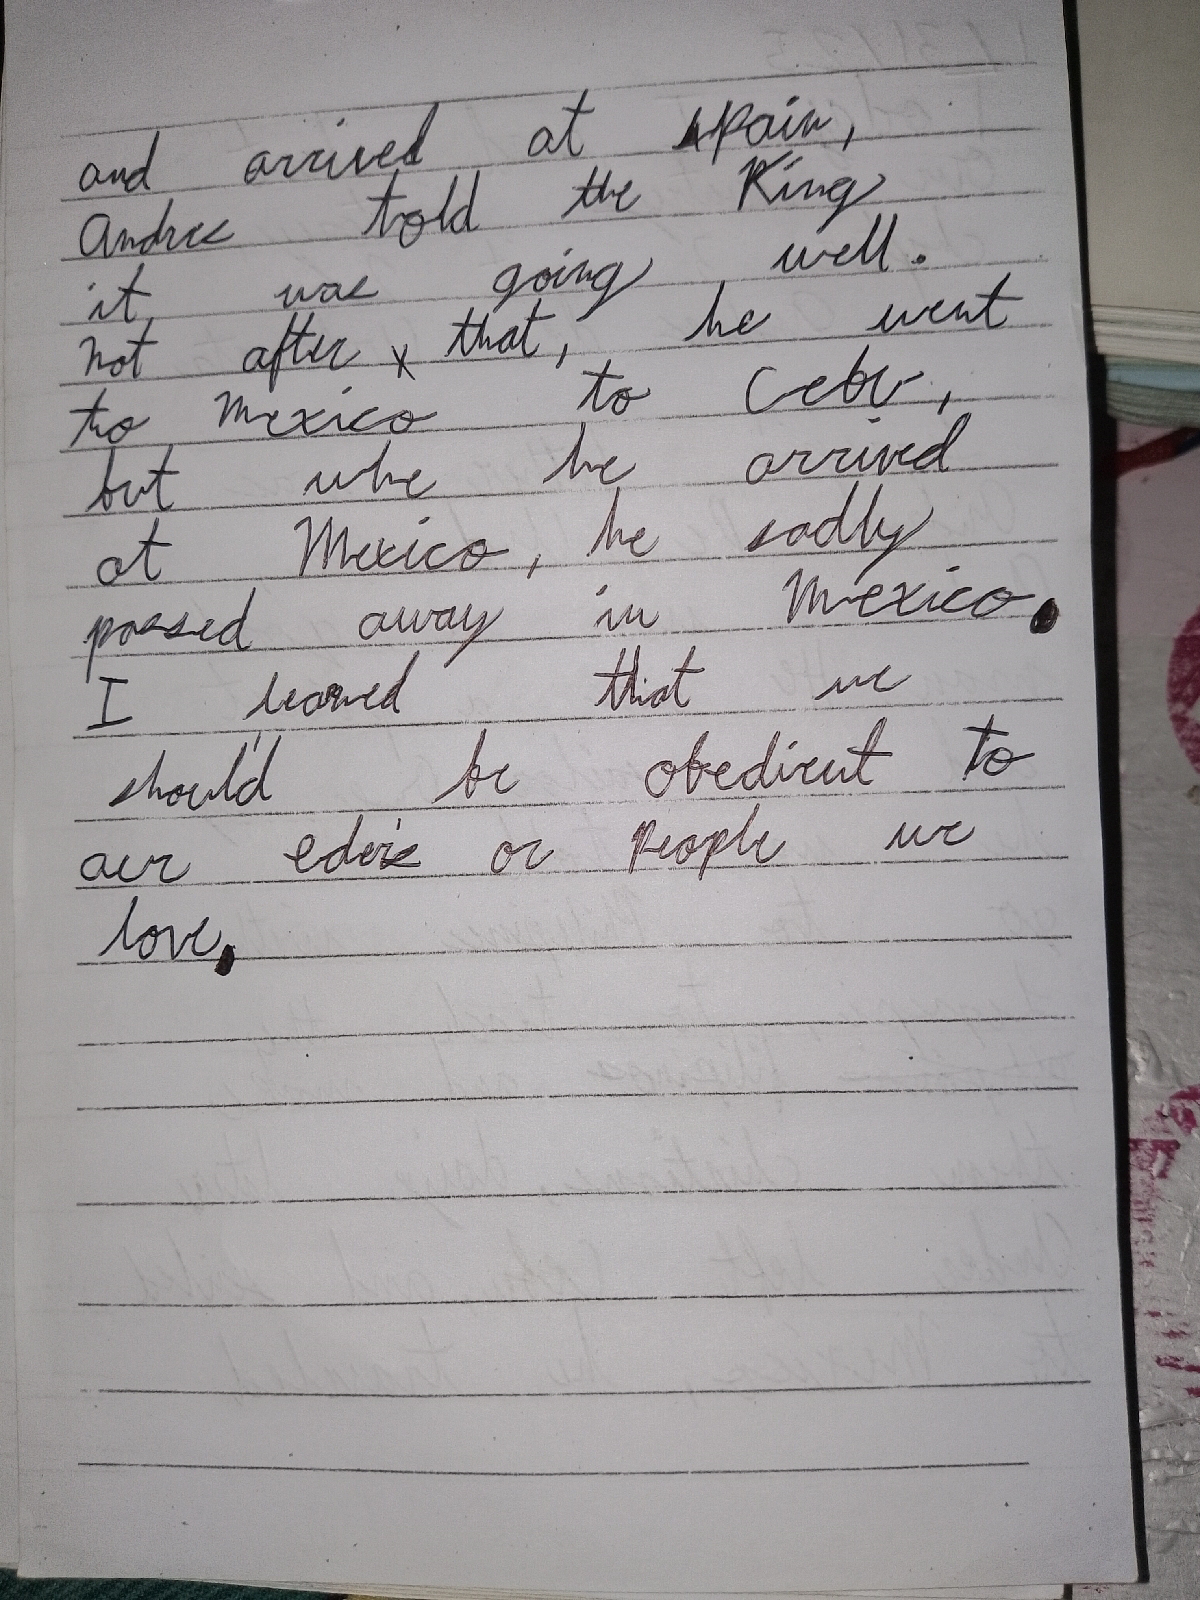 and arrived at spain,
Andres told the King
it was going well.
not after x that, he went
to Mexico to Cebu,
but whe he arrived
at Mexico, he sadly
passed away in Mexico.
I learned that we
should be obedient to
aur eders or people we
love.